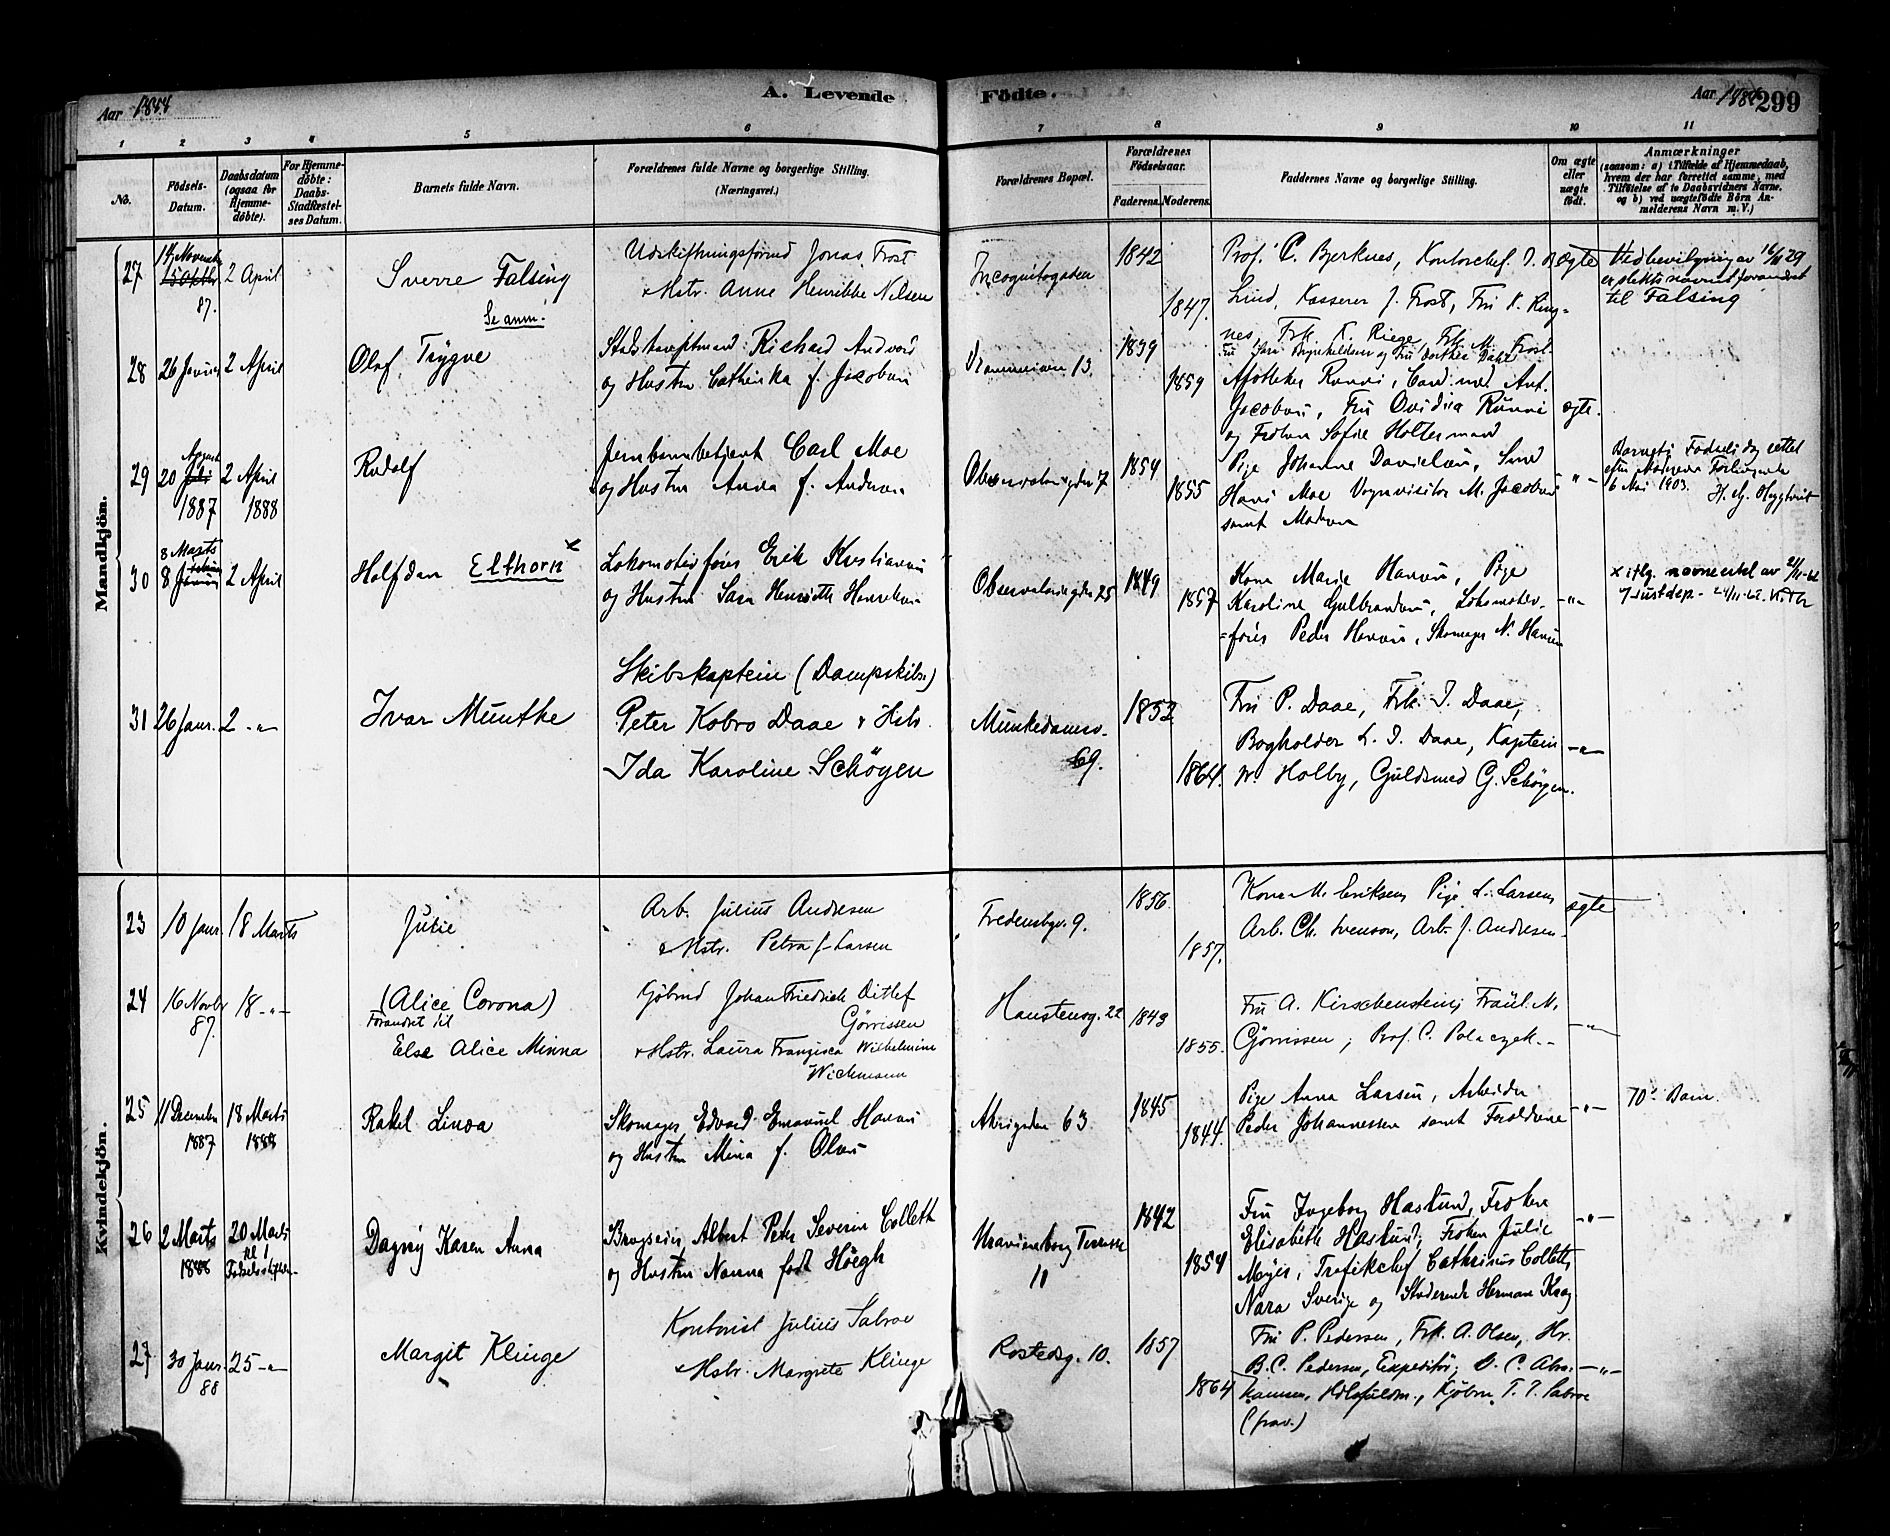 Aar 1888
A. Levende
Födte.
Aar 1888 299
1 2 3 4 5 6 7 8 9 10 11
No.
Födsels-
Datum.
Daabsdatum
(ogsaa for
Hjemme-
döbte).
For Hjemme-
döbte:
Daabs-
Stadfæstel-
ses Datum.
Barnets fulde Navn.
Forældrenes fulde Navne og borgerlige Stilling.
(Næringsvei.)
Forældrenes Bopæl.
Forældrenes
Födselsaar.
Faderens. Moderens.
Faddernes Navne og borgerlige Stilling.
Om ægte
eller
uægte
födt.
Anmærkninger
(saasom: a) i Tilfælde af Hjemmedaab,
hvem der har forrettet samme, med
Tilföielse af to Daabsvidners Navne,
og b) ved uægtefödte Börn An-
melderens Navn m. V.)
Mandkjön.
27
14 Novemb
87.
2 April
Sverre Falsing
Se anm.
Udskiftningsformd Jonas Frost
& Hstr. Anne Henrikke Nilsen
Incognitogaden
1842
1847.
Prof. C. Bjerknes, Kontorchef
Lind, Kasserer J. Frost, Fru K. Ring-
nes, Frk K. Riege, Frk M. Frost
ægte
Ved bevilgning av 16/11 29
er slektsnavnet forandret
til Falsing
28
26 Januar
2 April
Olaf Trygve
Richard Andvord
og Hustru Cathinka f. Jacobsen
13.
1839
1859
Apotheker Runni, Cand. med. Ant.
Jacobsen, Fru Ovidia Runni
og Frøken Sofie Holtermand
ægte.
29
20 August
Juli
1887
2 April
1888
Rudolf
Jernbanebetjent Carl Moe
og Hustru Anna f. Andersen
Observatoriegden 7
1854
1855
Pige Johanne Danielsen, Smed
Hans Moe Vognvisitør M. Jacobsen
samt Moderen
- " -
Barnets Fødselsdag rettet
efter Moderens Forlangende
6 Mai 1903. H. Hyggtveit
30
8 Marts
8 Januar
2 April
Halfdan Elthorn x
Lokomotivfører Erik Kristiansen
og Hustru Sara Henriette Henriksen
Observatoriegden 25
1849
1857
Kone Marie Hansen, Pige
Karoline Gulbrandsen, Lokomotiv-
=fører Peder Hansen, Skomager N. Hansen
- " -
x iflg. navneendr av
Justdep.
31
26 Janr.
2 - " -
Ivar Munthe
Skibskaptein (Dampskibs)
Peter Kobro Daae & Hstr.
Ida Karoline Schöyen
Munkedamsv.
69.
1852
1864.
Fru P. Daae, Frk. I. Daae,
Bogholder L. I. Daae, Kaptein
W. Holby, Guldsmed G. Schöyen.
- " -
Kvindekjön.
23
10 Janr.
18 Marts
Julie
Arb. Julius Andresen
& Hstr. Petra f. Larsen
Fredensbgv. 9.
1856.
1857.
Kone M. Eriksen, Pige L. Larsen,
Arb. Ch. Svenson, Arb. J. Andresen.
ægte
24
16 Novbr
87.
18 - " -
(Alice Corona)
Forandret til
Else Alice Minna
Gjörtler Johan Friedrich Ditlef
Görrissen
& Hstr. Laura Franzisca Wilhelmine
Wichmann
Hanstensg. 22
1843
1855.
Fru A. Kirschenstein; Fräul. M.
Görrissen; Prof. C. Polaczek.
- " -
25
11 December
1887
18 Marts
1888
Rakel Linda
Skomager Edvard Emanuel Hansen
og Hustru Mina f. Olsen
Akersgaden 63
1845
1844.
Pige Anna Larsen, Arbeider
Peder Johannessen samt Forældrene
- " -
26
2 Marts
1888
20 Marts
til
Dagny Karen Anna
Albert Peter Severin Collett
og Hustru Nanna født Höegh
Uranienborg Terrasse
11
1842
1854
Fru Ingeborg Haslund, Frøken
Elisabeth Haslund, Frøken Julie
Meyer, Trafikchef Cathrinus Collett,
Nara Sverige og Studerende Herman Krag
- " -
27
30 Janr.
88
25 - " -
Margit Klinge
Kontorist Julius Sabroe
& Hstr. Margrete Klinge
Rostedsg. 10.
1857
1864
Fru P. Pedersen, Frk. A. Olsen, Hr.
B. C. Pedersen, Expeditör; C. C. Abra-
hamsen, Kjöbm. T. T. Sabroe
(frav.)
- " -
70 Barn